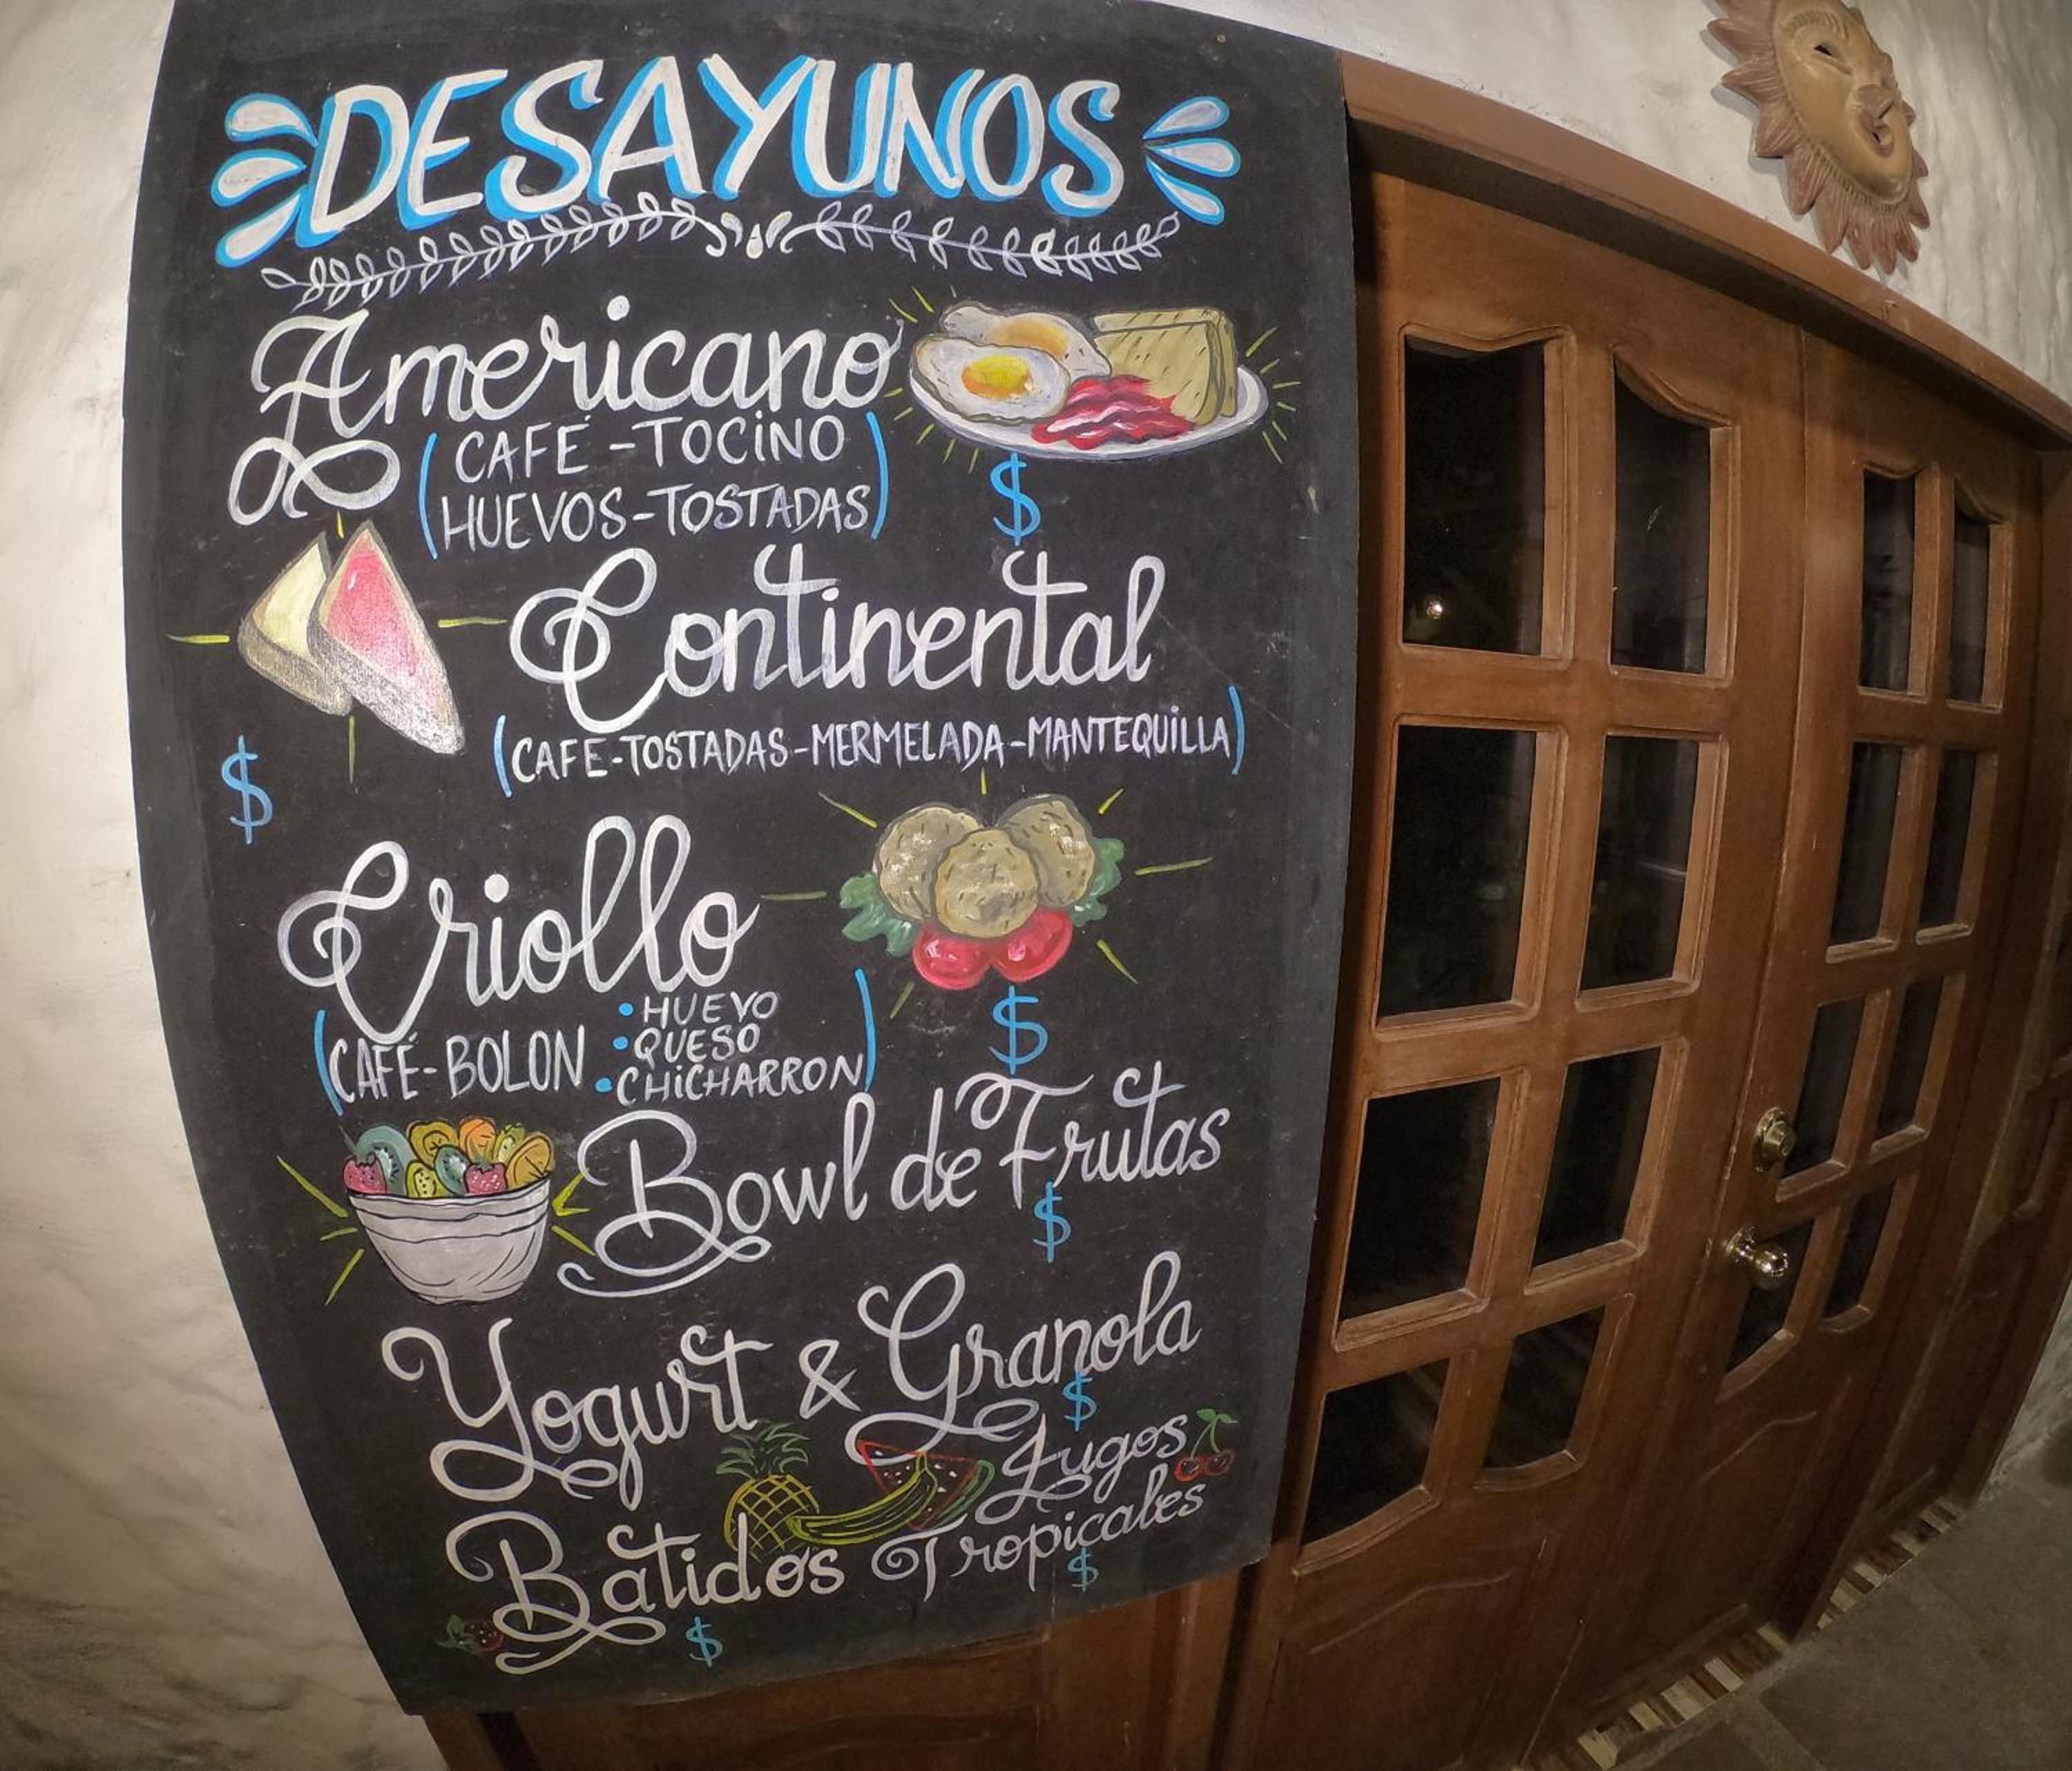 DESAYUNOS
Americano
(CAFÉ - TOCINO
HUEVOS-TOSTADAS)
$
Continental
(CAFE-TOSTADAS-MERMELADA-MANTEQUILLA)
$
Criollo
(CAFÉ-BOLON
• HUEVO
• QUESO
• CHICHARRON)
$
Bowl de Frutas
$
Yogurt & Granola
$
Batidos
$
Jugos
Tropicales
$